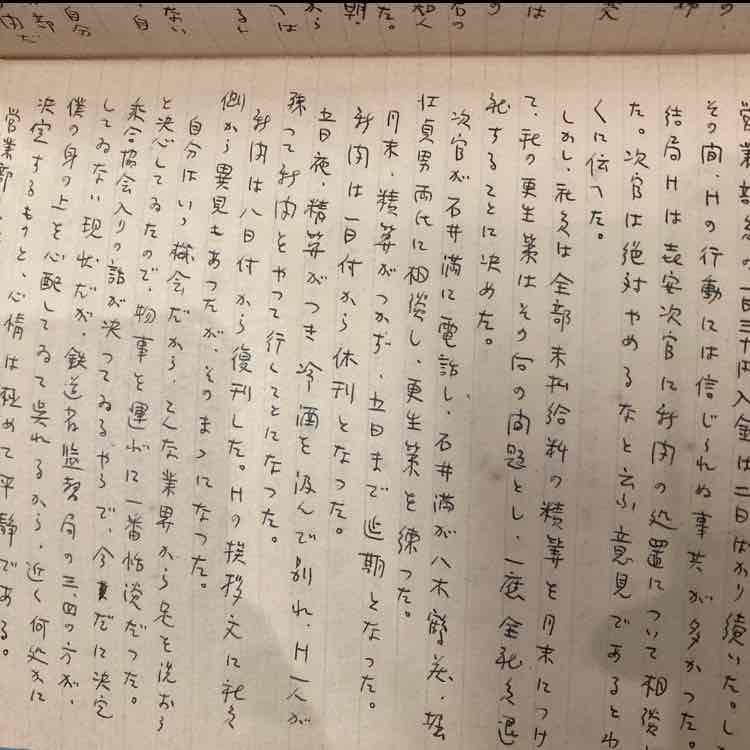 営業部員の一日三十円入金は二日ばかり続いた。し
その間、Hの行動には信じられぬ事共が多かつた。
結局Hは喜安次官に新聞の処置について相談
た。次官は絶対やめるなと云ふ意見であるとわ
くに伝つた。
しかし、社員は全部未払給料の精算を月末につけ
て、社の更生策はその何の問題とし、一應全社員退
社することに決めた。
次官が石井満に電話し、石井満が八木
江貞男両氏に相談し、更生策を練つた。
月末、精算がつかず、五日まで延期となつた。
新聞は一日付から休刊となつた。
五日夜、精算がつき冷酒を汲んで別れ、H一人が
残つて新聞をやつて行くことになつた。
新聞は八日付から復刊した。Hの挨拶文に社員
側から異見もあつたが、そのまゝになつた。
自分はいゝ機会だから、こんな業界から足を洗おう
と決心してゐたので、物事を運ぶに一番恬淡だつた。
乗合協会入りの話が決つてゐるやうで、今だに決定
してゐない現状だが、鉄道省監督局の三、四の方が、
僕の身の上を心配してゐて呉れるから、近く何処かに
決定するものと、心情は極めて平静である。
営業部